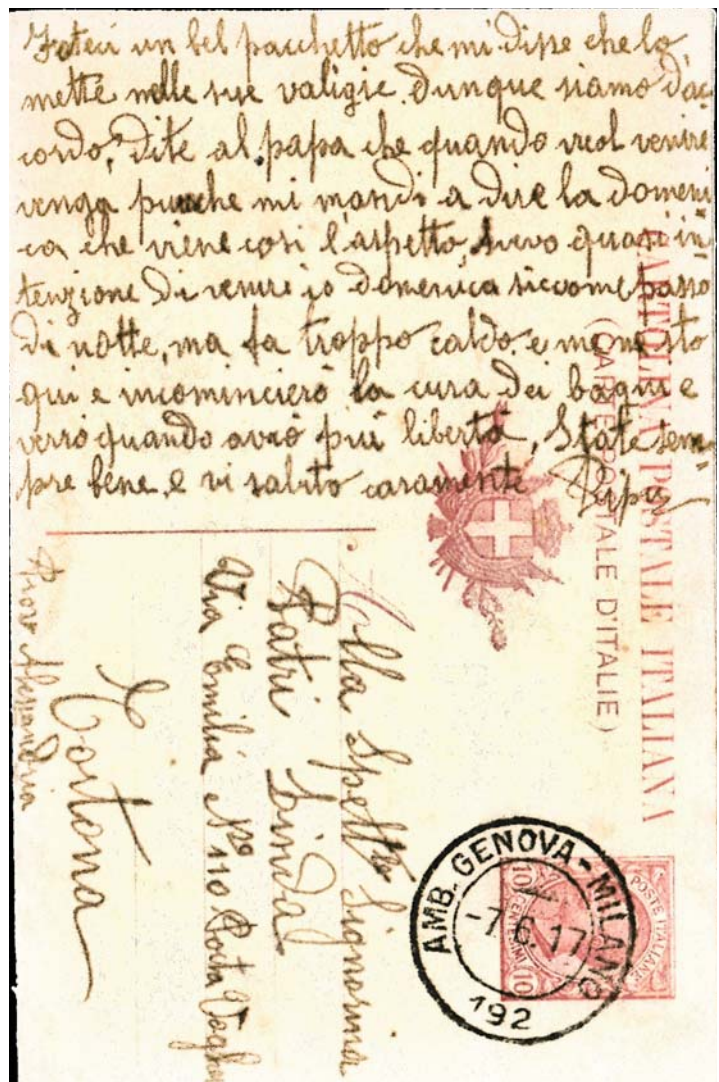 Fateci un bel pacchetto che mi disse che lo
mette nelle sue valigie. Dunque siamo d'ac
cordo, dite al papa che quando vuol venire
venga purche mi mandi a dire la domeni
ca che viene cosi l'aspetto, avevo quasi in
tenzione di venire io domenica siccome passo
di notte, ma fa troppo caldo e me ne sto
qui e incomincierò la cura dei bagni e
verrò quando avrò più libertà, State sem
pre bene e vi saluto caramente
CARTOLINA POSTALE ITALIANA
(CARTE POSTALE D'ITALIE)
Alla Spett. Signorina
Patri Linda
Via Emilia No 110 Porta Voghe
Tortona
Alessandria
POSTE ITALIANE
10 CENTESIMI 10
AMB. GENOVA-MILANO
-7.6.17
192